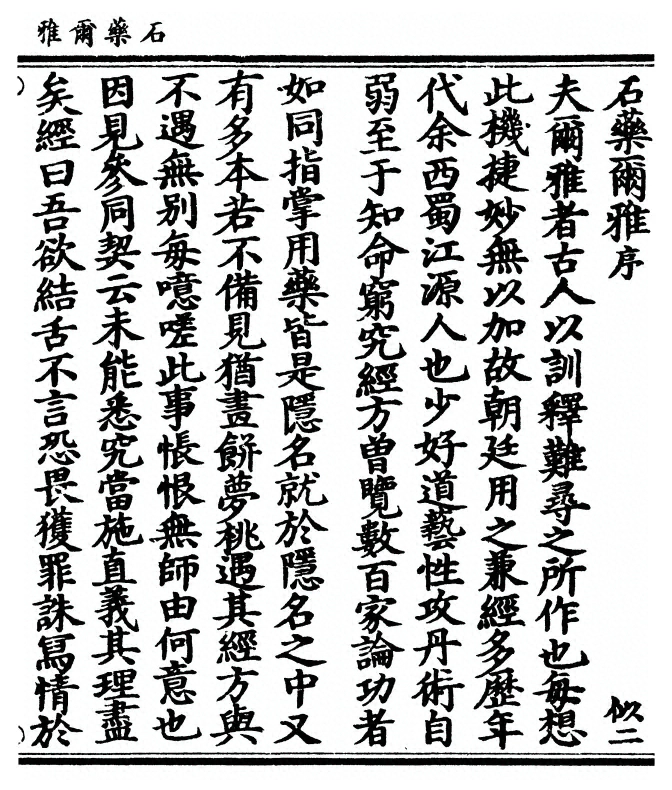 石藥爾雅
石藥爾雅序 似二
夫爾雅者古人以訓釋難尋之所作也每想
此機捷妙無以加故朝廷用之兼經多歷年
代余西蜀江源人也少好道藝性攻丹術自
弱至于知命窮究經方曾覽數百家論功者
如同指掌用藥皆是隱名就於隱名之中又
有多本若不備見猶畫餅夢桃遇其經方與
不遇無別每噫嗟此事悵恨無師由何意也
因見參同契云未能悉究當施直義其理盡
矣經曰吾欲結舌不言恐畏獲罪誅寫情於